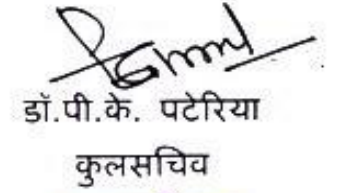 डॉ.पी.के. पटेरिया
कुलसचिव